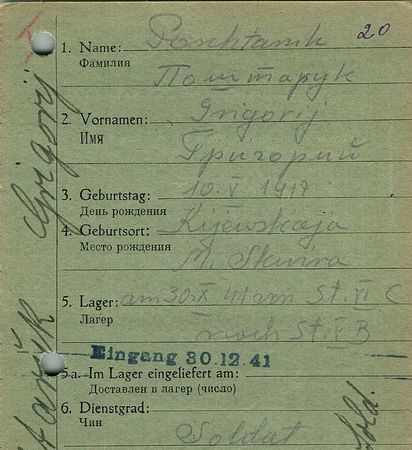 20
1. Name: Poschtaruk
Фамилия Поштарук
2. Vornamen: Grigorij
Имя Григорий
3. Geburtstag: 10. V 1917
День рождения
4. Geburtsort: Kijewskaja
Место рождения M. Skwira
5. Lager: am 30. X 41 am St. VI C
Лагер nach St. V B
Eingang 30.12.41
5a. Im Lager eingeliefert am:
Доставлен в лагер (число)
6. Dienstgrad:
Чин Soldat
Grigorij
Sold.